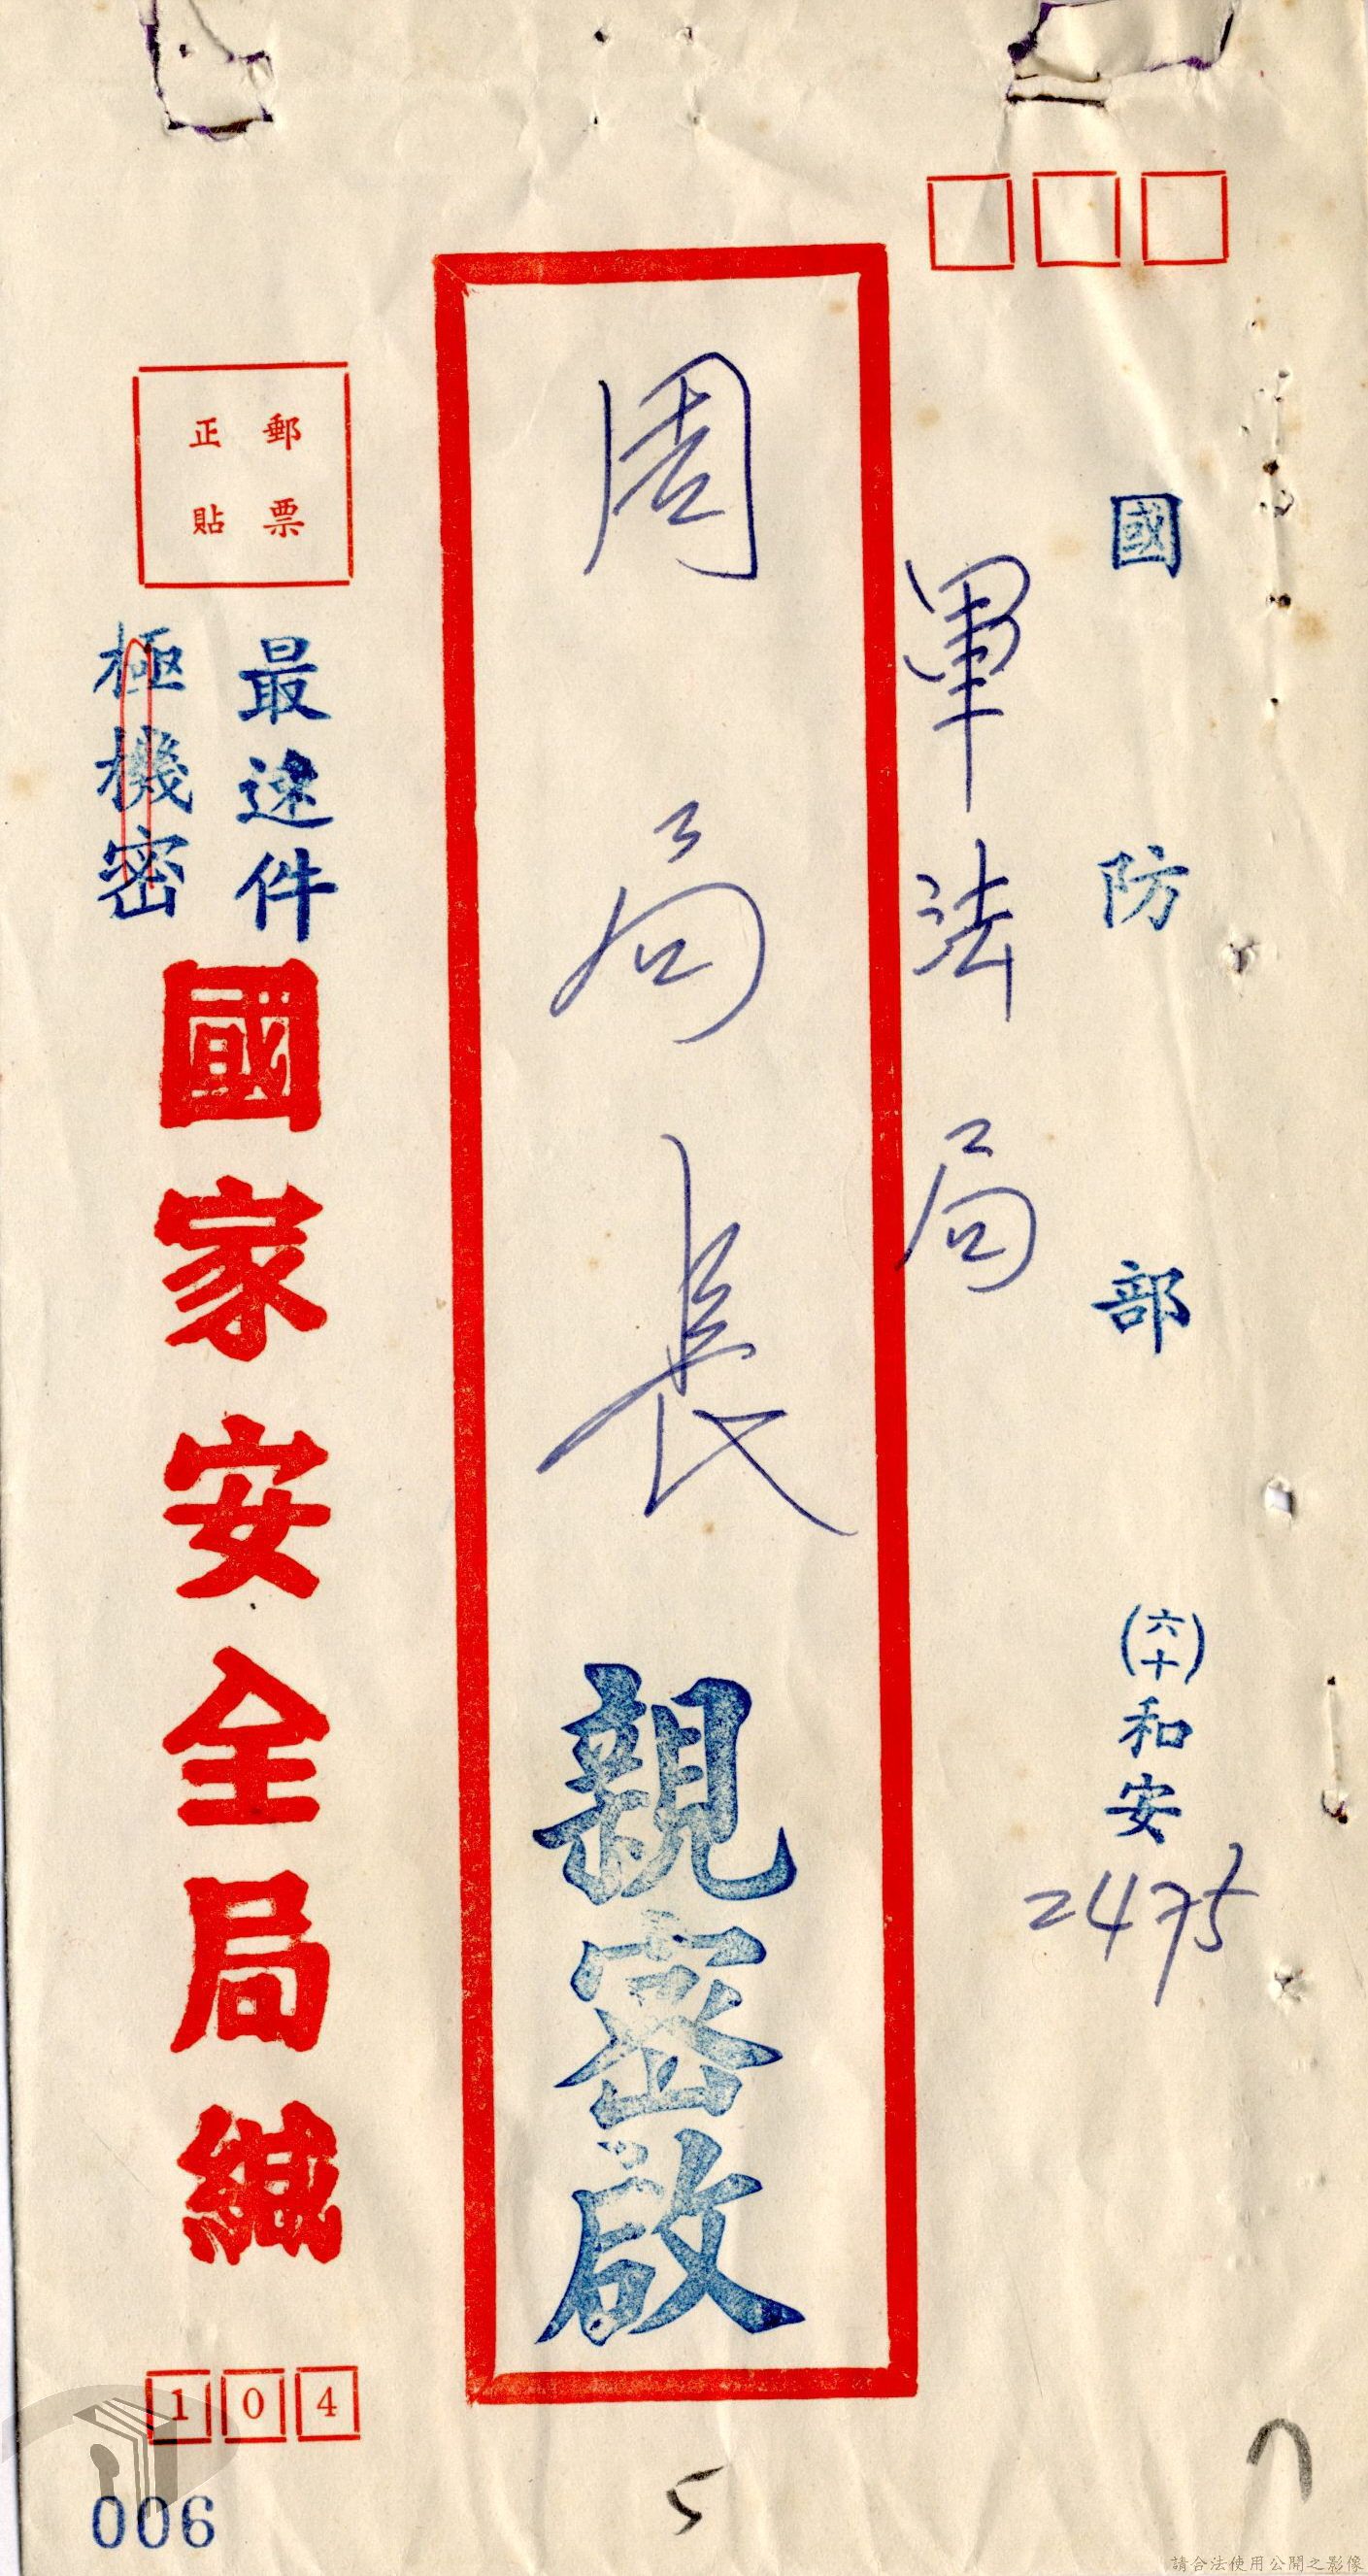 國防部
(六十)和安2475
軍法局
周局長親密啟
郵票
正貼
最速件
極機密
國家安全局緘
104
006
5
請合法使用公開之影像